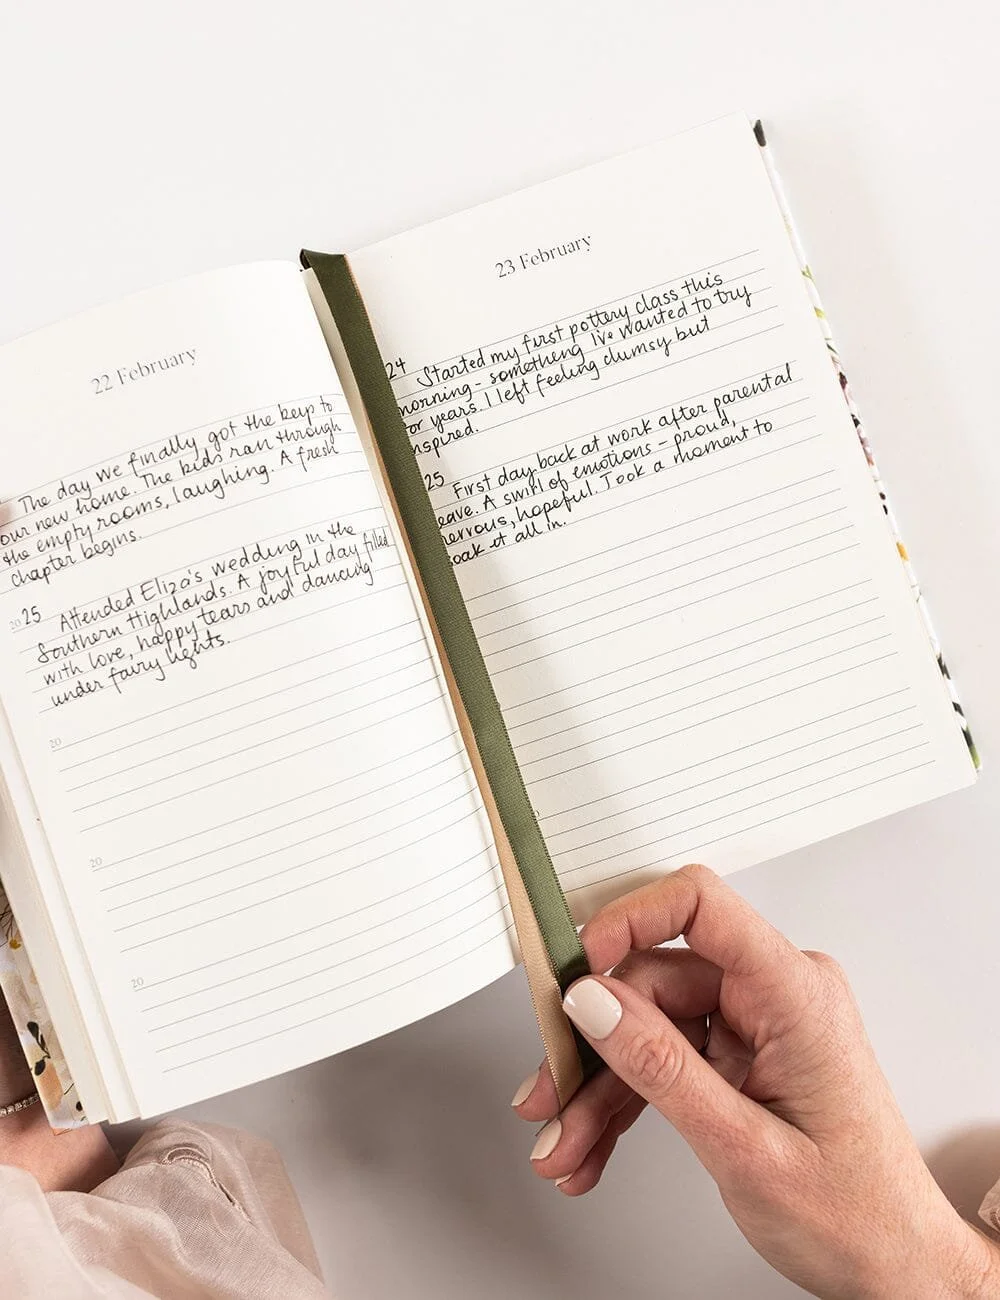 22 February
The day we finally got the keys to
our new home. The kids ran through
the empty rooms, laughing. A fresh
chapter begins.
2025 Attended Eliza's wedding in the
Southern Highlands. A joyful day filled
with love, happy tears and dancing
under fairy lights.
20
20
20
23 February
24 Started my first pottery class this
morning - something I've wanted to try
or years. I left feeling clumsy but
nspired.
25 First day back at work after parental
eave. A swirl of emotions - proud,
nervous, hopeful. Took a moment to
oak it all in.